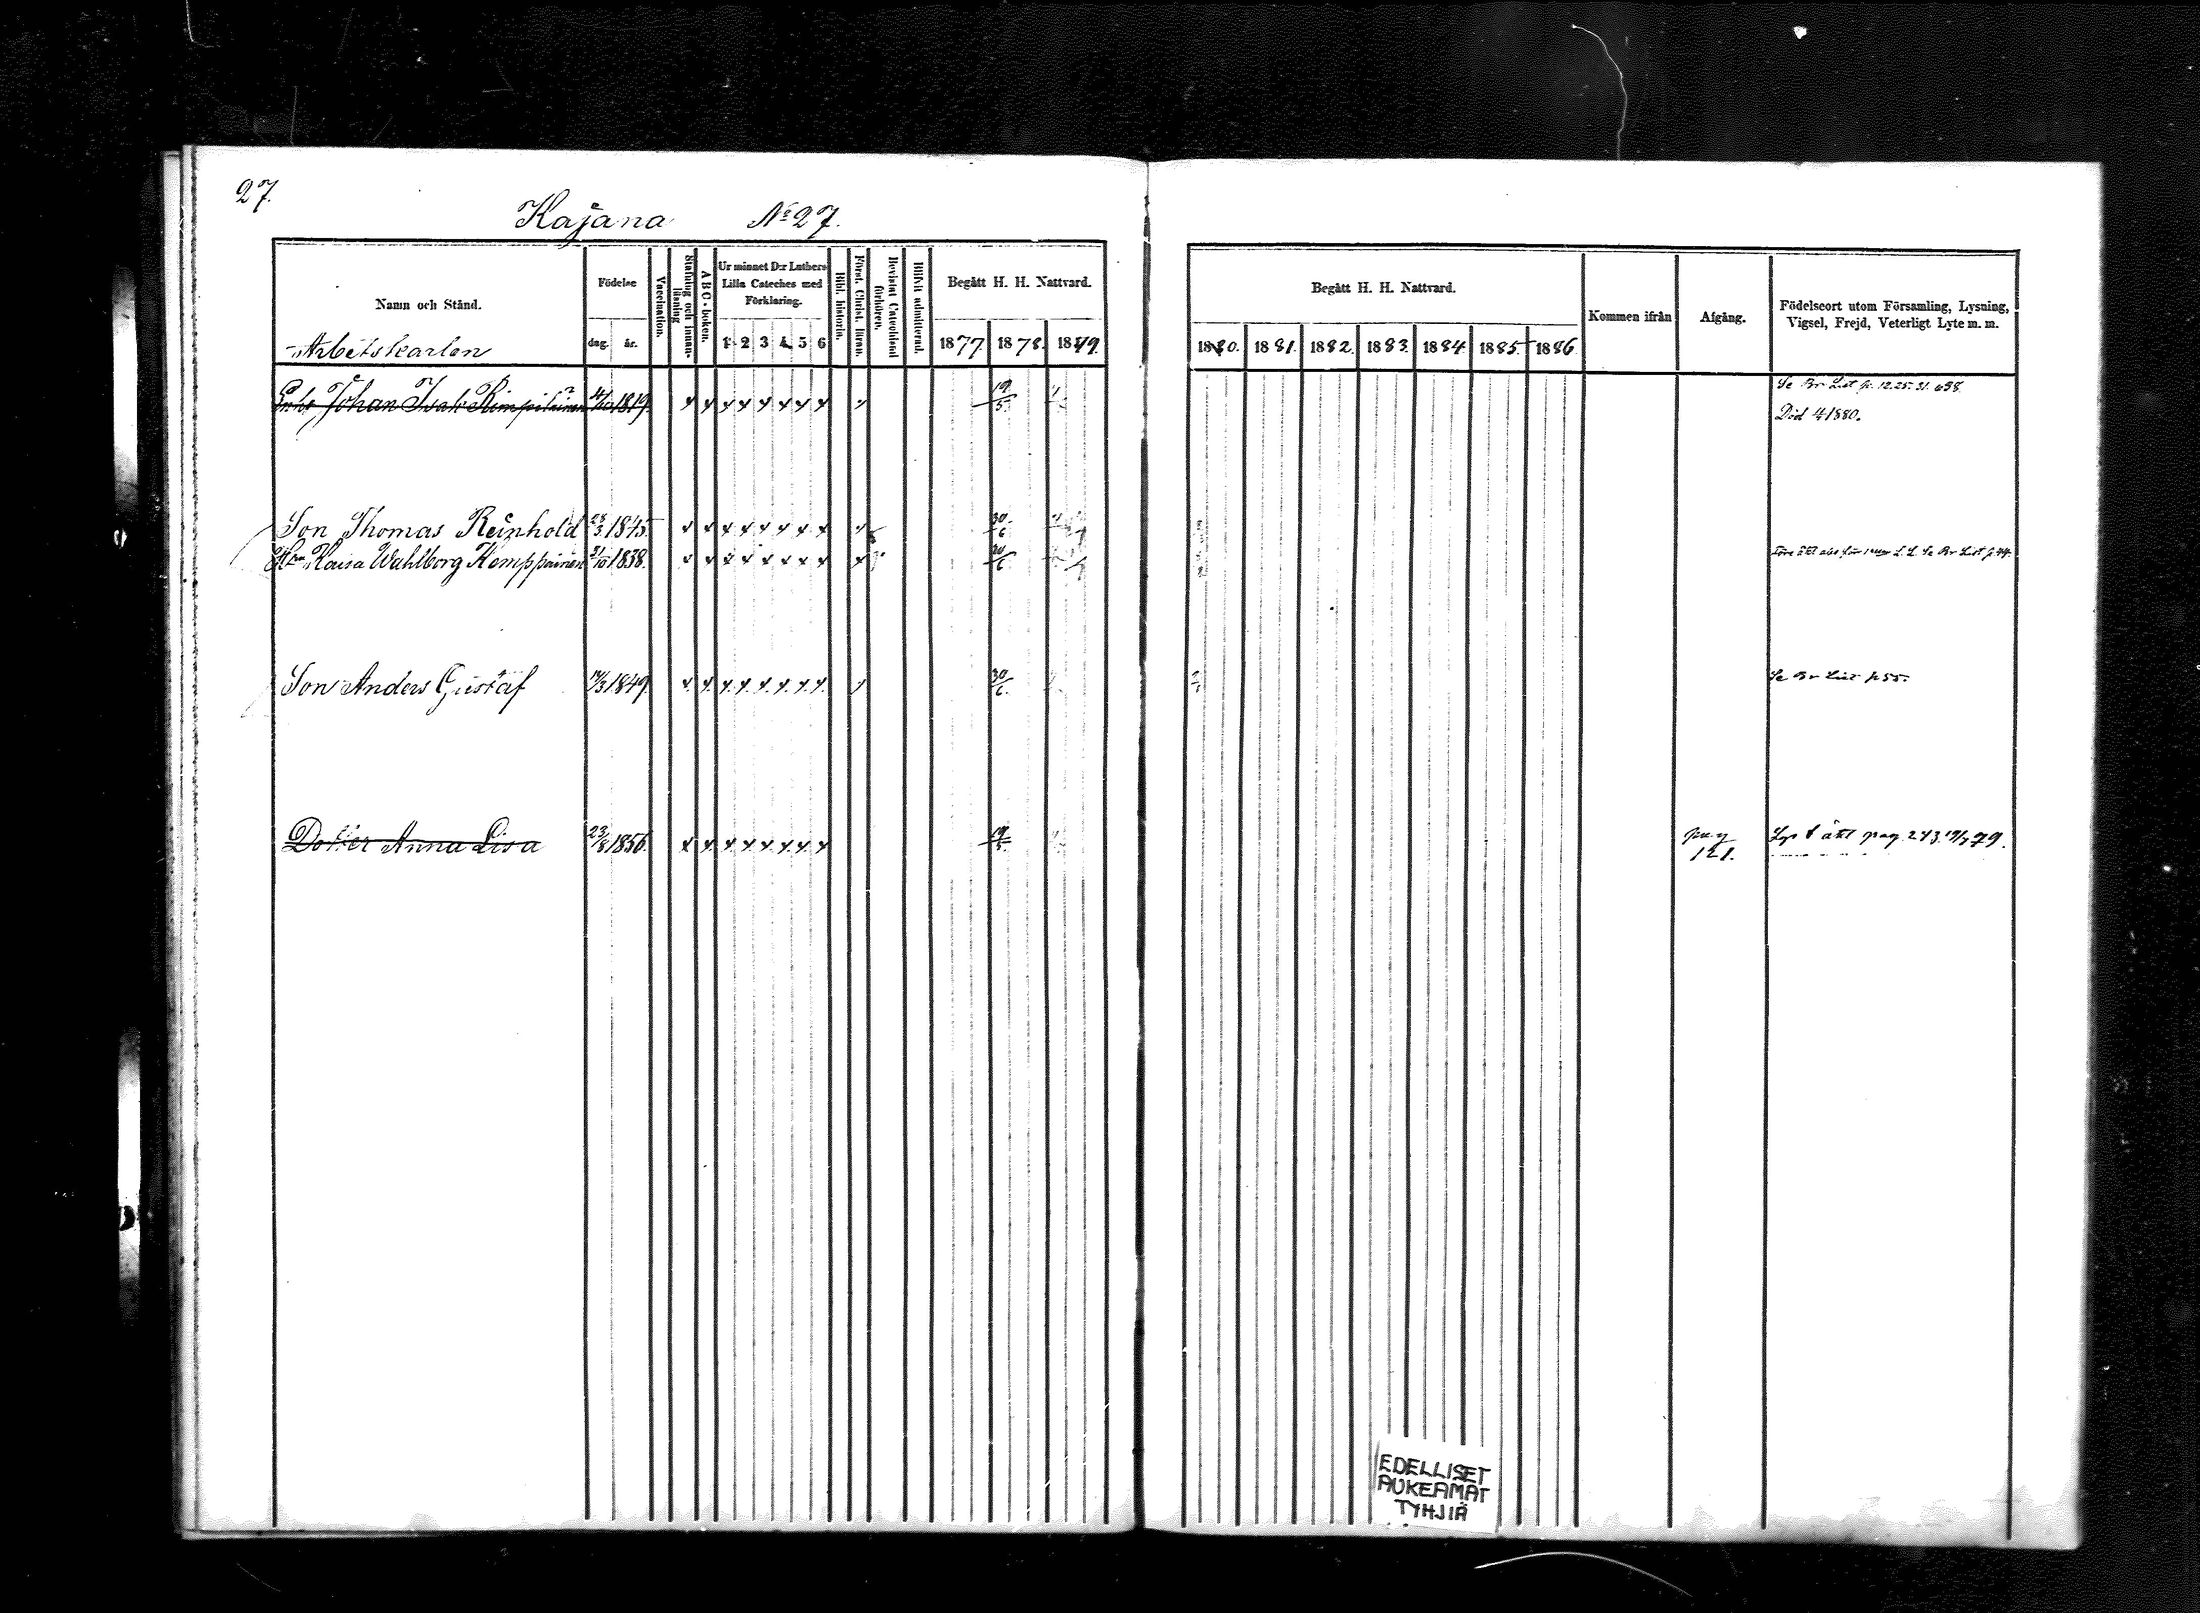 27.
Kajana No 27.
Namn och Stånd.
Födelse
dag. år.
Vaccination.
Stafning och innanläsning
A B C-boken.
Ur minnet D:r Luthers Lilla Cateches med Förklaring.
1 2 3 4 5 6
Bibl. historia.
Först. Christ. läran.
Bevistat Catechismi förhören.
Blifvit admitterad.
Begått H. H. Nattvard.
1877. 1878. 1879.
Begått H. H. Nattvard.
1880. 1881. 1882. 1883. 1884. 1885. 1886
Kommen ifrån
Afgång.
Födelseort utom Församling, Lysning, Vigsel, Frejd, Veterligt Lyte m. m.
Arbetskarlen
Johan Isak 1819. 19/5 Se Br List p. 12.25.31.
Död 1880.
Son Thomas Reinhold 1845 30/6
Kaisa Wahlborg Kemppainen 31/10 1838. 30/6 Se Br List p.
Son Anders Gustaf 1849. 30/6 Se Br List p 55.
Dotter Anna Lisa 23/8 1856. 19/5 pag 121. Lys t ått pag 243. 79.
EDELLISET
AUKEAMAT
TYHJIÄ